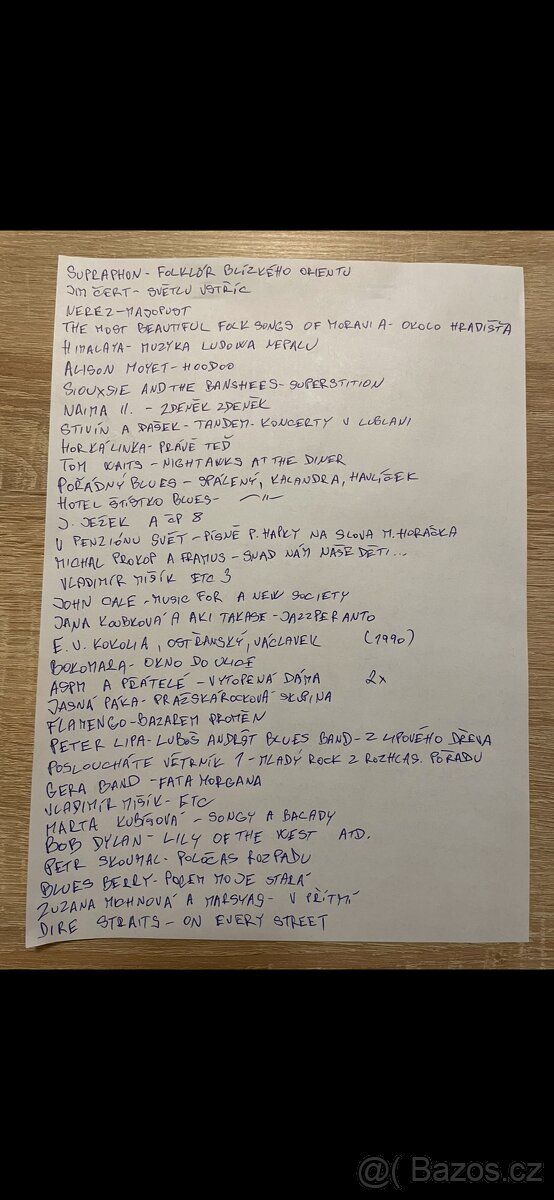 SUPRAPHON - FOLKLÓR BLÍZKÉHO ORIENTU
JIM ČERT - SVĚTLU VSTŘÍC
NEREZ - MASOPUST
THE MOST BEAUTIFUL FOLK SONGS OF MORAVIA - OKOLO HRADIŠŤA
HIMALAYA - MUZYKA LUDOWA NEPALU
ALISON MOYET - HOODOO
SIOUXSIE AND THE BANSHEES - SUPERSTITION
NAIMA II. - ZDENĚK ZDENĚK
STIVÍN A DAŠEK - TANDEM - KONCERTY V LUBLANI
HORKÁ LINKA - PRÁVĚ TEĎ
TOM WAITS - NIGHTAWKS AT THE DINER
POŘÁDNÝ BLUES - SPÁLENÝ, KALANDRA, HAVLÍČEK
HOTEL ŠTÍSTKO BLUES - —〃—
J. JEŽEK A ČP 8
V PENZIÓNU SVĚT - PÍSNĚ P. HAPKY NA SLOVA M. HORÁČKA
MICHAL PROKOP A FRAMUS - SNAD NÁM NAŠE DĚTI...
VLADIMÍR MIŠÍK ETC 3
JOHN CALE - MUSIC FOR A NEW SOCIETY
JANA KOUBKOVÁ A AKI TAKASE - JAZZPERANTO
E. V. KOKOLIA, OSTŘANSKÝ, VÁCLAVEK (1990)
BOKOMARA - OKNO DO ULICE
ASPM A PŘÁTELÉ - VYTOPENÁ DÁMA 2x
JASNÁ PÁKA - PRAŽSKÁ ROCKOVÁ SKUPINA
FLAMENGO - BAZAREM PROMĚN
PETER LIPA - LUBOŠ ANDRŠT BLUES BAND - Z LIPOVÉHO DŘEVA
POSLOUCHÁTE VĚTRNÍK 1 - MLADÝ ROCK Z ROZHLAS. POŘADU
GERA BAND - FATA MORGANA
VLADIMÍR MIŠÍK - ETC
MARTA KUBIŠOVÁ - SONGY A BALADY
BOB DYLAN - LILY OF THE WEST ATD.
PETR SKOUMAL - POLOČAS ROZPADU
BLUES BERRY - POJEM MOJE STARÁ
ZUZANA MICHNOVÁ A MARSYAS - V PŘÍTMÍ
DIRE STRAITS - ON EVERY STREET
@( Bazos.cz